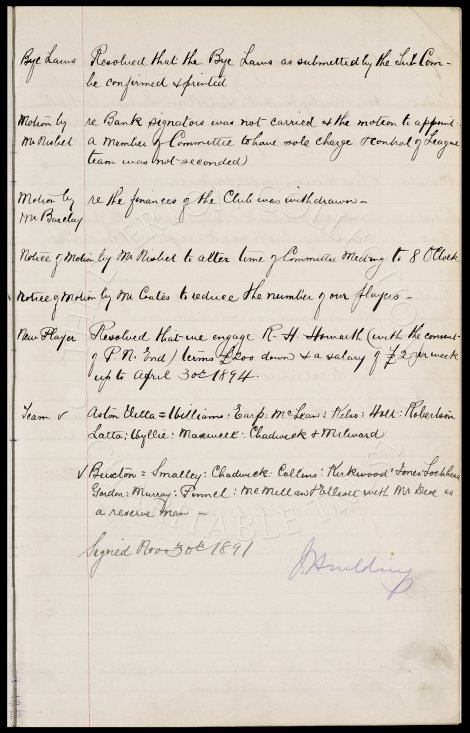 Bye Laws Resolved that the Bye Laws as submitted by the Sub Com-
be confirmed & printed
Motion by re Bank signators was not carried & the motion to appoint
Mr Nisbet a member of Committee to have sole charge & control of League
team was not seconded
Motion by re the finances of the Club was withdrawn -
Mr Barclay
Notice of Motion by Mr Nisbet to alter time of Committee Meeting to 8 O'Clock
Notice of Motion by Mr Coates to reduce the number of our players -
New Player Resolved that we engage R. H. Howarth (with the consent
of P. N. End) terms £200 down & a salary of £2 per week
up to April 30th 1894.
Team v Aston Villa = Williams: Earp: McLean: Kelso: Holt: Robertson
Latta: Wyllie: Maxwell: Chadwick & Milward
v Buxton = Smalley: Chadwick: Collins: Kirkwood: Jones: Lochhead
Gordon: Murray: Pinnell: McMillan & Elliott with Mr as
a reserve man -
Signed Nov 30th 1891
J. Houlding